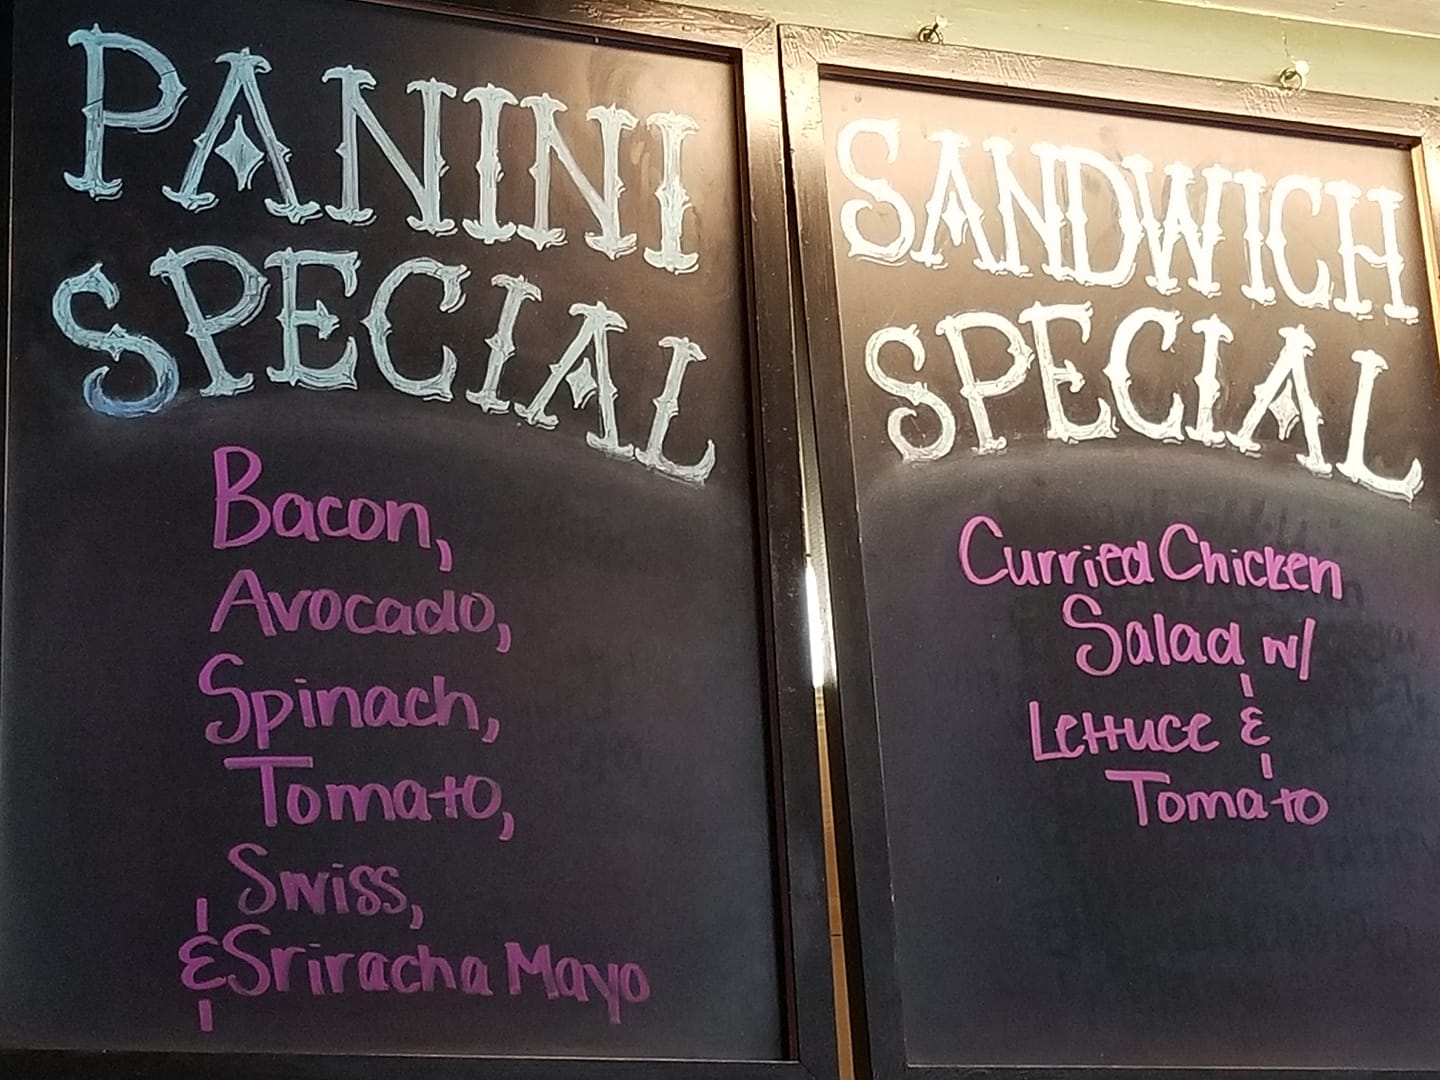 PANINI
SPECIAL
Bacon,
Avocado,
Spinach,
Tomato,
Swiss,
& Sriracha Mayo
SANDWICH
SPECIAL
Curried Chicken
Salad w/
Lettuce &
Tomato